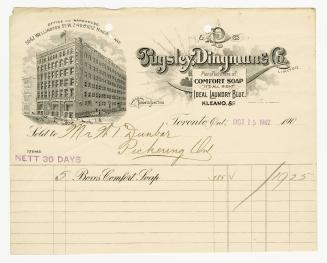 OFFICE AND WAREHOUSE
Pugsley, Dingman & Co.
LIMITED
Manufacturers of
COMFORT SOAP
"IT'S ALL RIGHT"
IDEAL LAUNDRY BLUE,
KLEANO, &c
Toronto, Ont. OCT 15 1902 190
Sold to Mr. W. T. Dunbar
Pickering Ont
TERMS
NETT 30 DAYS
5 Boxes Comfort Soap 385 19 25